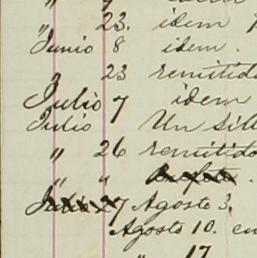 " 23. idem
Junio 8 idem.
" 23 remitido
Julio 7 idem
Julio Un sill
" 26 remitido
" "
Julio 27 Agosto 3.
Agosto 10. en
" 17